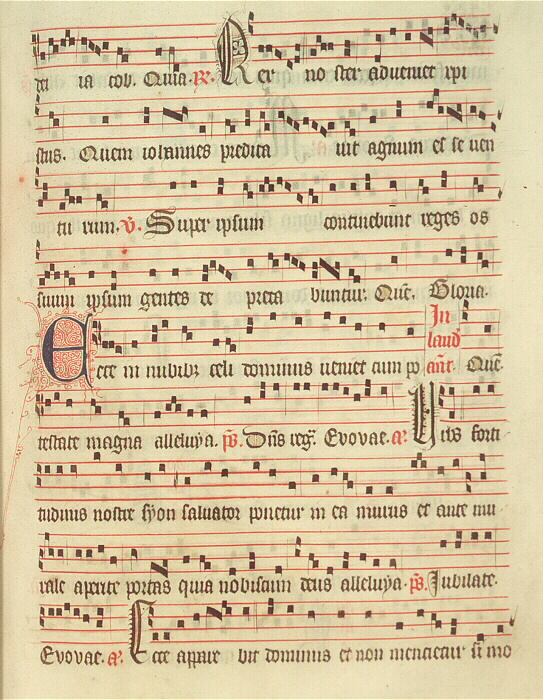 de ia cob. Quia. R. Rex no ster adueniet xpi
stus. Quem iohannes predica uit agnum es se uen
tu rum. V. Super ipsum continebunt reges os
suum ipsum gentes de preca buntur. Quē. Gloria.
In laud
Ecce in nubibꝫ celi dominus ueniet cum po an̄t. Quē
testate magna alleluya. ps. Dn̄s reg. Evovae. a. Urbs forti
tudinis nostre syon saluator ponetur in ea murus et ante mu
rale aperite portas quia nobiscum deus alleluya. ps. Jubilate.
Evovae. a. Ecce appare bit dominus et non mencietur si mo